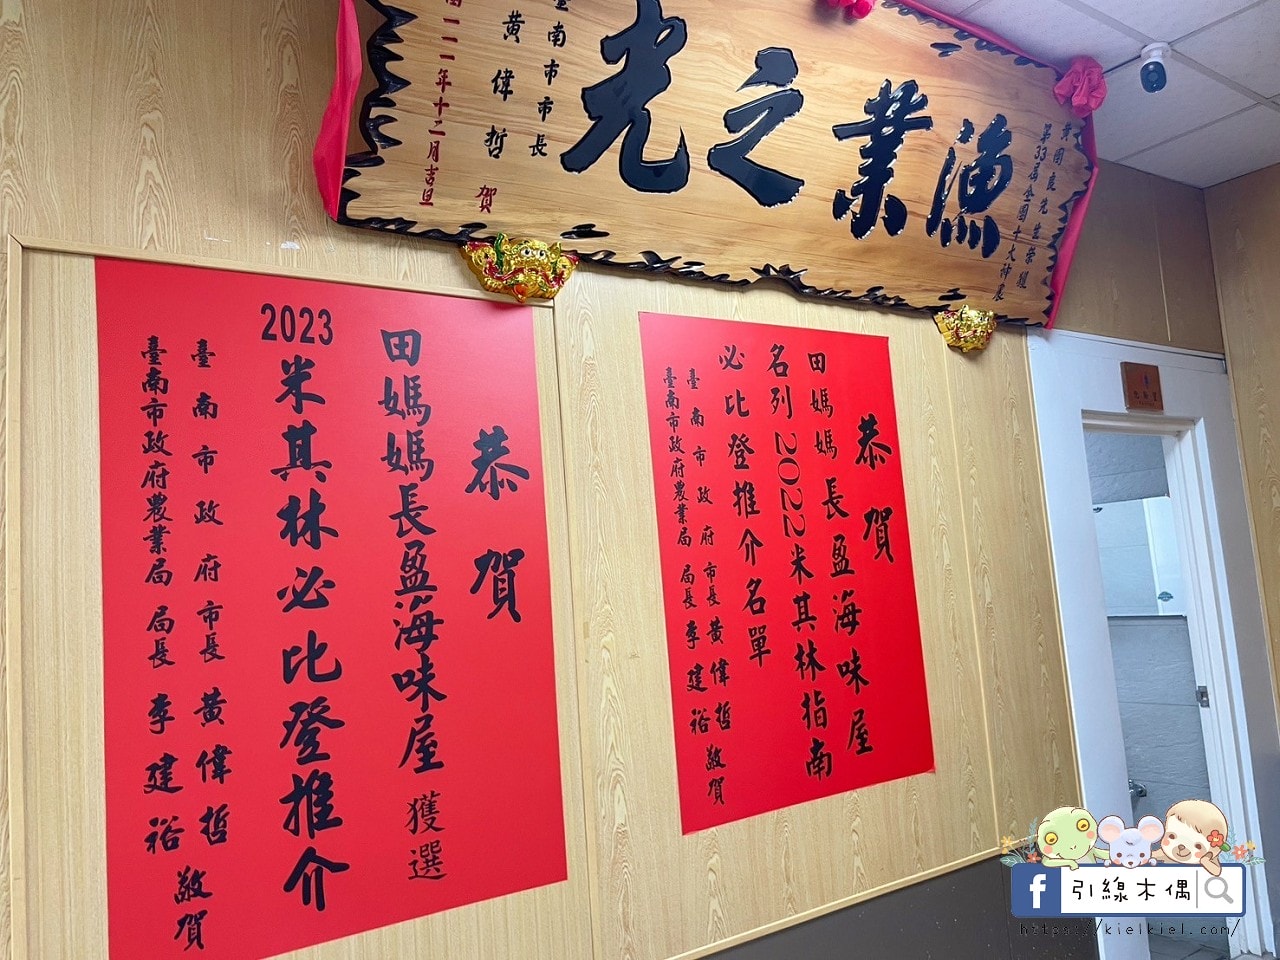 黃國良先生榮獲
第33屆全國十大神農
漁業之光
臺南市市長
黃偉哲 賀
一一一年十二月吉旦
恭賀
田媽媽長盈海味屋
名列2022米其林指南
必比登推介名單
臺南市政府市長黃偉哲
臺南市政府農業局 局長李建裕 敬賀
恭賀
田媽媽長盈海味屋 獲選
2023
米其林必比登推介
臺南市政府市長 黃偉哲
臺南市政府農業局 局長 李建裕 敬賀
f 引線木偶
https://kielkiel.com/